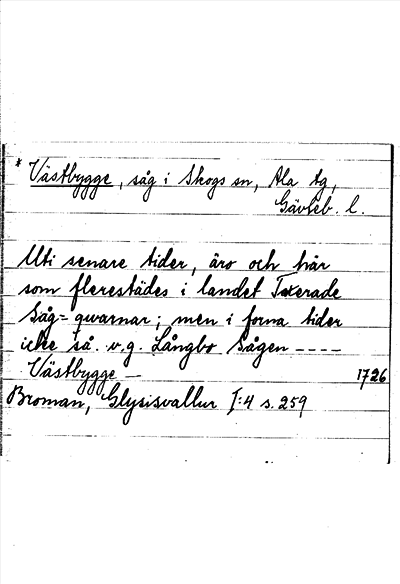 * Västbygge, såg i Skogs sn, Ala tg,
Gävleb. l.
Uti senare tider, äro och här
som flerestädes i landet Taxerade
Såg=qwarnar; men i forna tider
icke så. v.g. Långbo Sågen ----
Västbygge — 1726
Broman, Glysisvallur I:4 s. 259